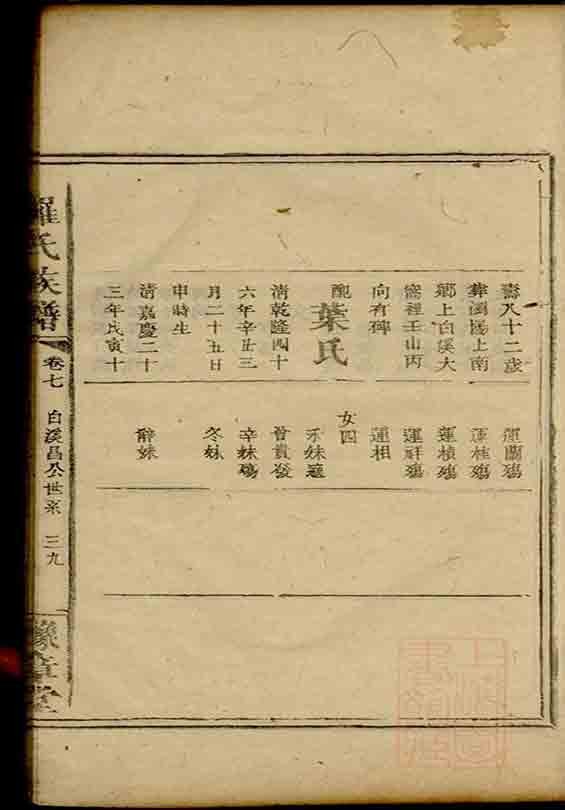 壽八十二歲
葬瀏陽上南
鄉上白溪大
窩裡壬山丙
向有碑
配
葉氏
清乾隆四十
六年辛丑三
月二十五日
申時生
清嘉慶二十
三年戊寅十
運蘭殤
運桂殤
運楨殤
運祥殤
運相
女四
禾妹適
曾貴發
辛妹殤
冬妹
辭妹
羅氏族譜
卷七
白溪昌公世系
三九
豫章堂